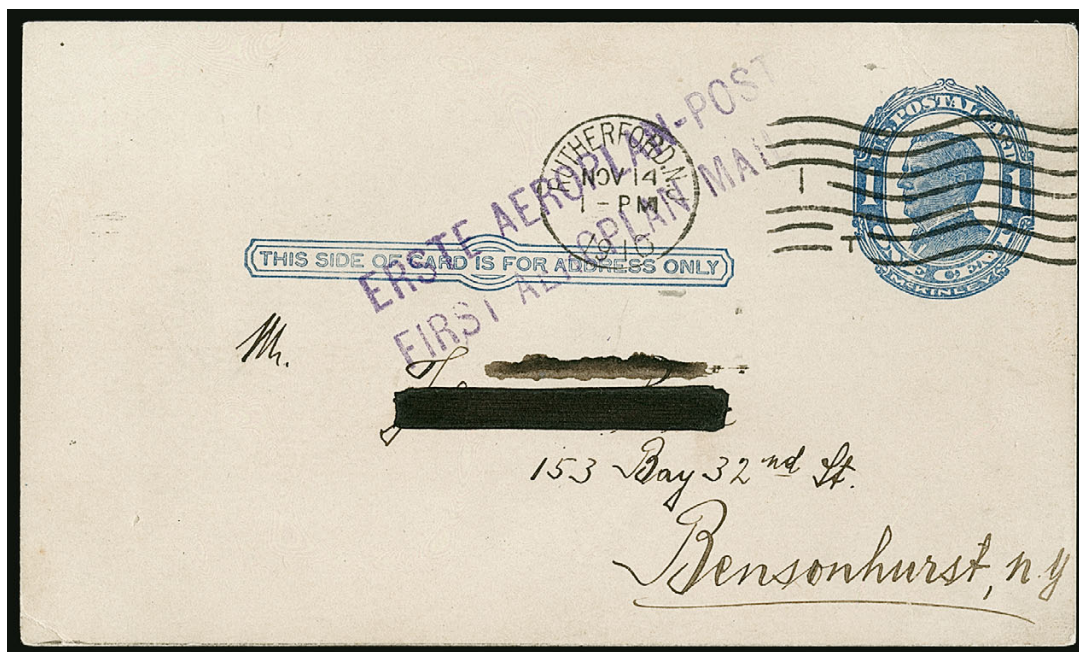 ERSTE AEROPLAN-POST
FIRST AEROPLAN MAIL
RUTHERFORD, N.J.
NOV 14
1-PM
1910
U.S. POSTAL CARD
1 1
ONE CENT
McKINLEY
THIS SIDE OF CARD IS FOR ADDRESS ONLY
Mr.
153 Bay 32nd St.
Bensonhurst, n.y